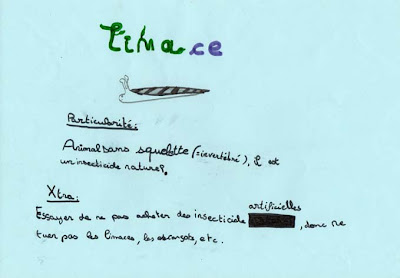 Limace
Particularité:
Animal sans squelette (=invertébré), Il est
un insecticide naturel.
Xtra:
artificielles
Essayer de ne pas acheter des insecticide , donc ne
tuer pas les limaces, les escargots, etc.